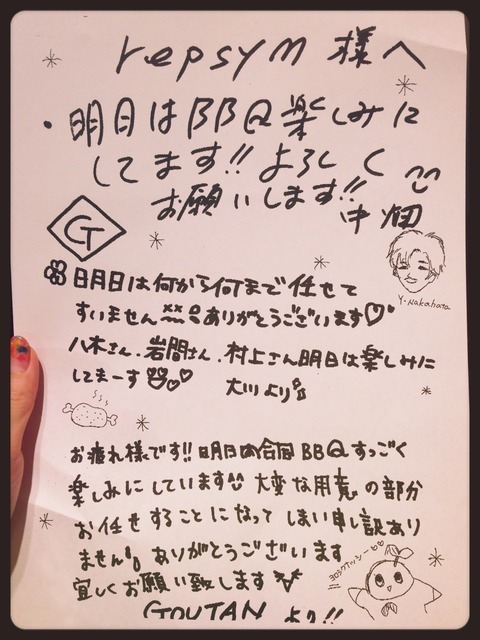 repsym 様へ
・明日はBBQ楽しみに
してます!! よろしく
お願いします!!
中畑
G
Y.Nakahata
明日は何から何まで任せて
すいません ありがとうございます♡
八木さん、岩間さん、村上さん明日は楽しみに
してまーす♡♡
大川より
お疲れ様です!! 明日の合同BBQすっごく
楽しみにしています 大変な用意の部分
お任せすることになってしまい申し訳あり
ません ありがとうございます
宜しくお願い致します
GOUTANより!!